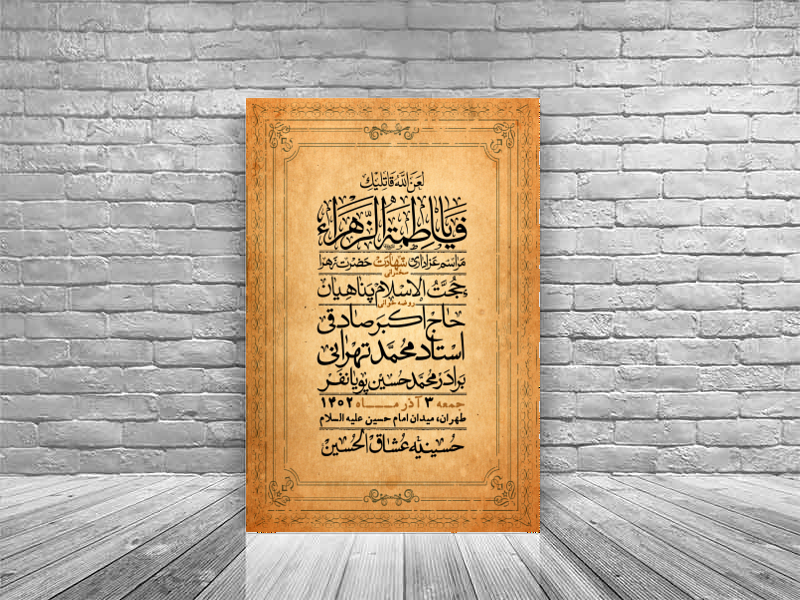 لَعَنَ اللهُ قَاتِلِیكِ
فَیَا فَاطِمَةُ الزَّهْرَاءُ
مراسم عزاداری شهادت حضرت زهرا
سخنرانی
حُجَّتُ الاسلام پناهیان
روضه خوانی
حاج اکبر صادقی
استاد محمد تهرانی
برادر محمد حسین پویانفر
جمعه ۳ آذر مـــاه ۱۴۰۲
طهران، میدان امام حسین علیه السلام
حسینیه عشاق الحسین